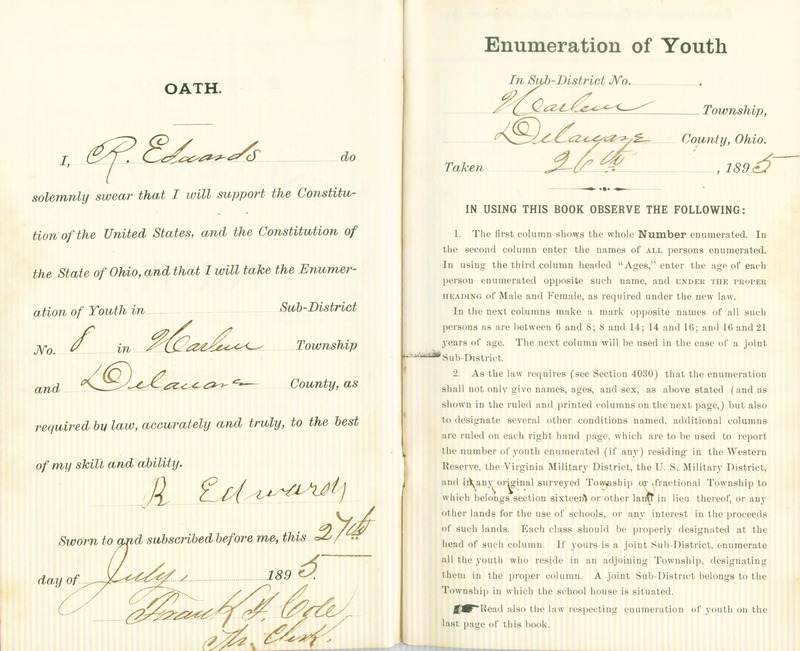 OATH.
I, R. Edwards do
solemnly swear that I will support the Constitu-
tion of the United States, and the Constitution of
the State of Ohio, and that I will take the Enumer-
ation of Youth in Sub-District
No. 8 in Harlem Township
and Delaware County, as
required by law, accurately and truly, to the best
of my skill and ability.
R Edwards
Sworn to and subscribed before me, this 27th
day of July, 1895.
Frank F. Cole
Clerk.
Enumeration of Youth
In Sub-District No. .
Harlem Township,
Delaware County, Ohio.
Taken 26th, 1895
IN USING THIS BOOK OBSERVE THE FOLLOWING:
1. The first column shows the whole Number enumerated. In
the second column enter the names of ALL persons enumerated.
In using the third column headed "Ages," enter the age of each
person enumerated opposite such name, and UNDER THE PROPER
HEADING of Male and Female, as required under the new law.
In the next columns make a mark opposite names of all such
persons as are between 6 and 8; 8 and 14; 14 and 16; and 16 and 21
years of age. The next column will be used in the case of a joint
Sub-District.
2. As the law requires (see Section 4030) that the enumeration
shall not only give names, ages, and sex, as above stated (and as
shown in the ruled and printed columns on the next page,) but also
to designate several other conditions named, additional columns
are ruled on each right hand page, which are to be used to report
the number of youth enumerated (if any) residing in the Western
Reserve, the Virginia Military District, the U. S. Military District,
and in any original surveyed Township or fractional Township to
which belongs section sixteen or other land in lieu thereof, or any
other lands for the use of schools, or any interest in the proceeds
of such lands. Each class should be properly designated at the
head of such column. If yours is a joint Sub-District, enumerate
all the youth who reside in an adjoining Township, designating
them in the proper column. A joint Sub-District belongs to the
Township in which the school house is situated.
Read also the law respecting enumeration of youth on the
last page of this book.